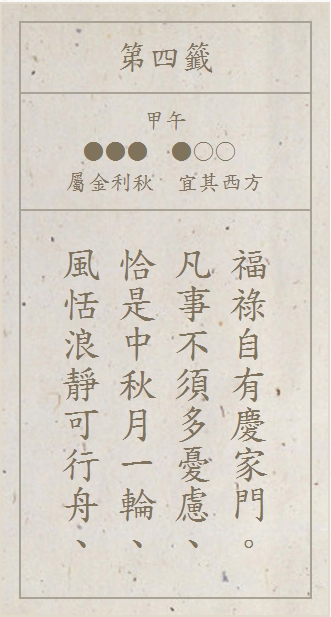 第四籤
甲午
●●● ●○○
屬金利秋 宜其西方
風恬浪靜可行舟、
恰是中秋月一輪、
凡事不須多憂慮、
福祿自有慶家門。